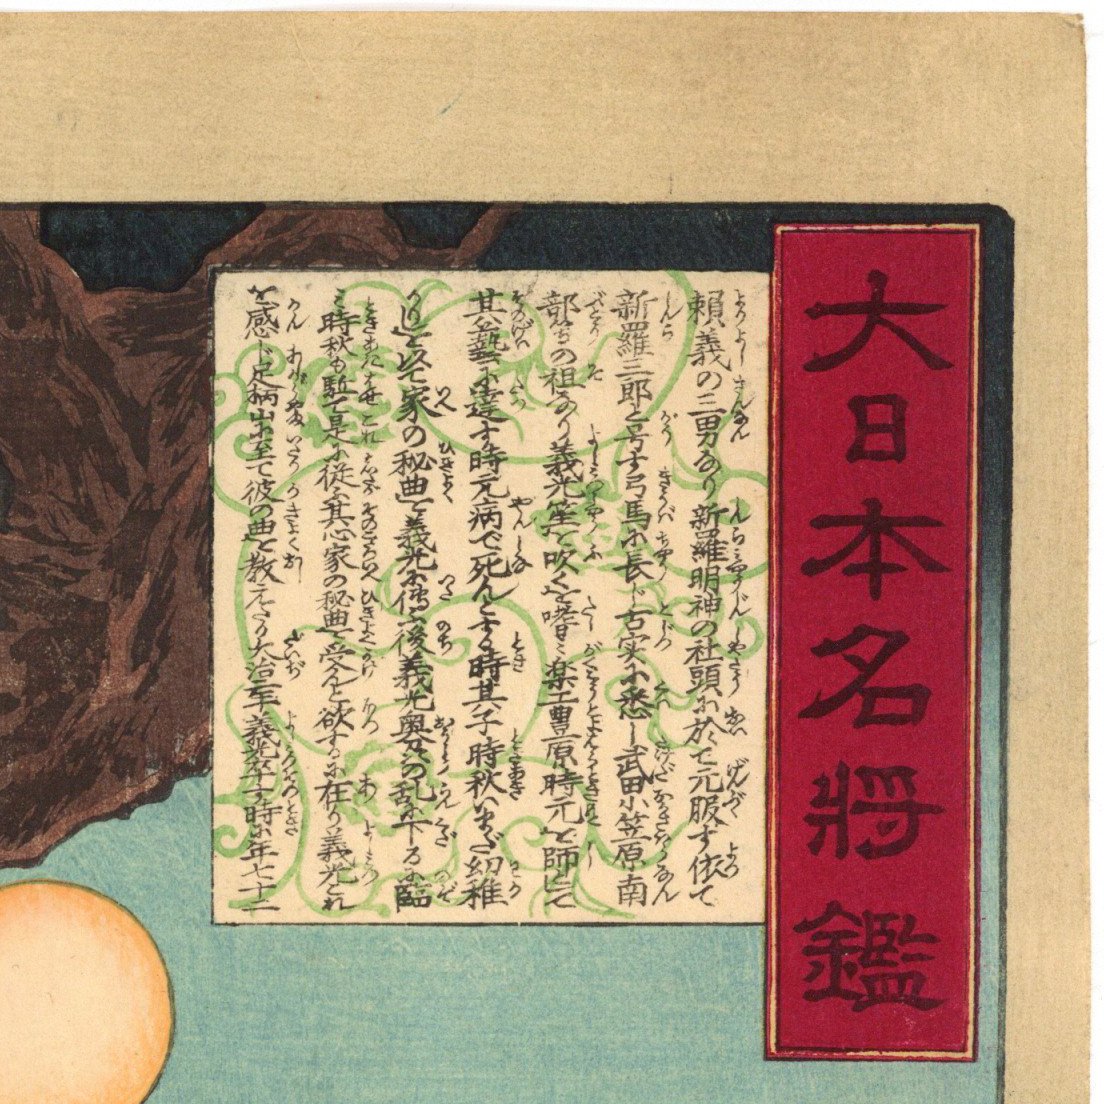 大日本名将鑑
頼義の三男なり新羅明神の社頭に於て元服す依て
新羅三郎と号す弓馬に長じ古実に悉し武田小笠原南
部等の祖なり義光笙を吹くを嗜み楽工豊原時元を師として
其藝に達す時元病で死んとする時其子時秋いまだ幼稚
なりしを以て家の秘曲を義光に傳ふ後義光奥への乱に下るに臨
み時秋も駈て是に従ふ其心家の秘曲を受んと欲するに在り義光これ
を感じ足柄山に至て彼の曲を教えたり大治二年義光卒す時に年七十二